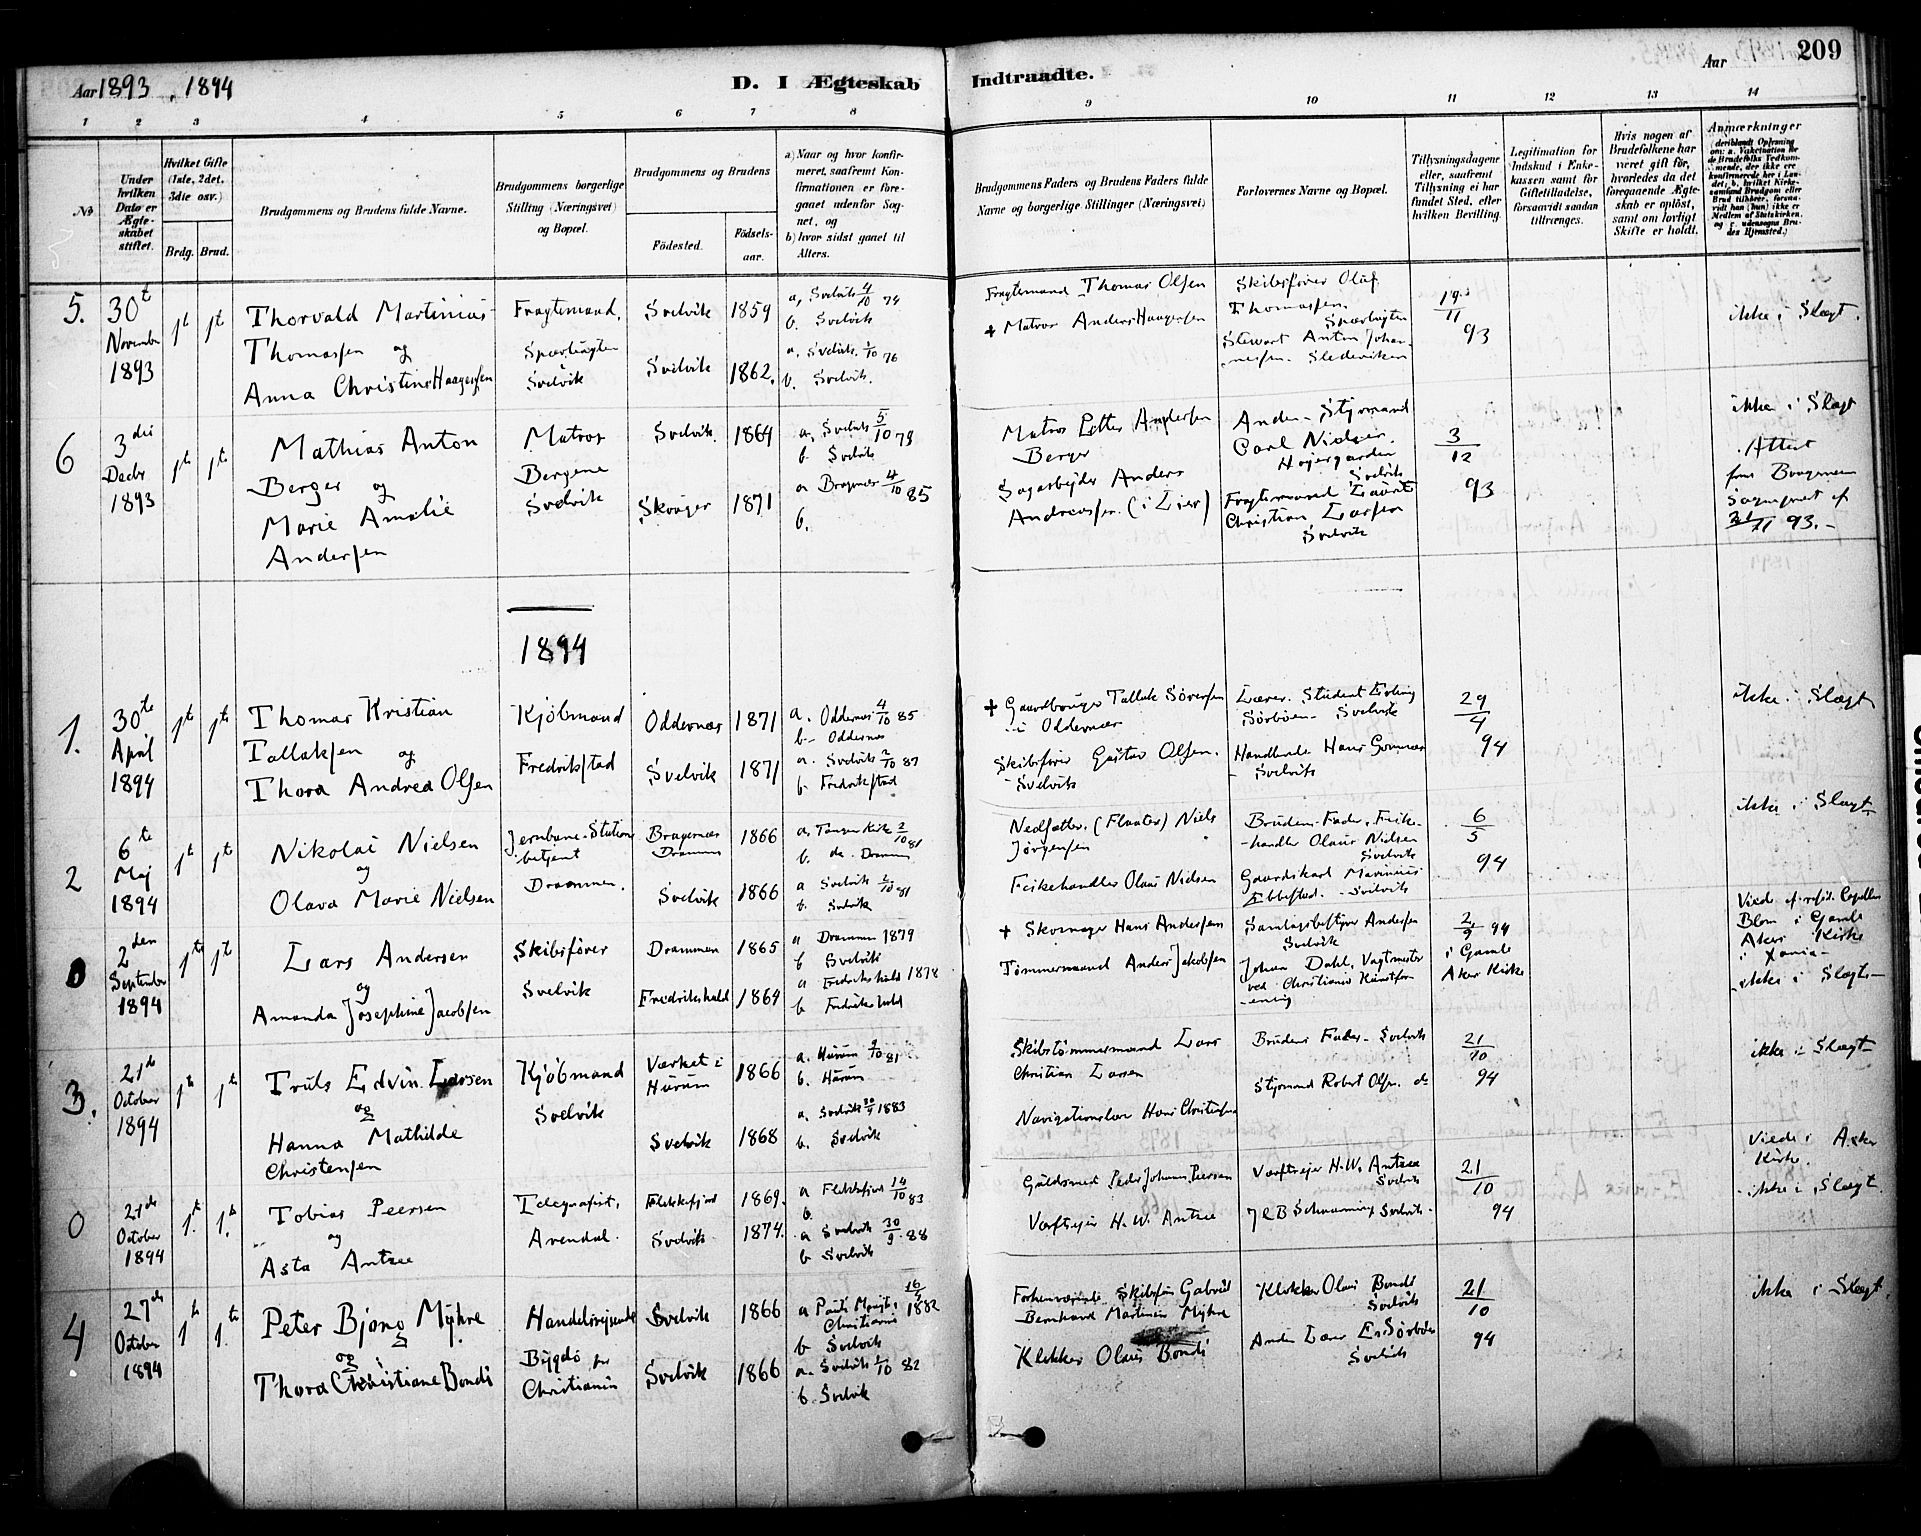 Aar 1893, 1894
D. I Ægteskab Indtraadte.
Aar 209
1 2 3 4 5 6 7 8 9 10 11 12 13 14
No
Under hvilken Dato er Ægteskabet stiftet.
Hvilket Gifte (1ste, 2det, 3die osv.)
Brdg. Brud.
Brudgommens og Brudens fulde Navne.
Brudgommens borgerlige Stilling (Næringsvei) og Bopæl.
Brudgommens og Brudens
Födested.
Födselsaar.
a) Naar og hvor konfirmeret, saafremt Konfirmationen er foregaaet udenfor Sognet, og
b) hvor sidst gaaet til Alters.
Brudgommens Faders og Brudens Faders fulde Navne og borgerlige Stillinger (Næringsvei)
Forlovernes Navne og Bopæl.
Tillysningsdagene eller, saafremt Tillysning ei har fundet Sted, efter hvilken Bevilling.
Legitimation for Indskud i Enkekassen samt for Giftetilladelse, forsaavidt saadan tiltrænges.
Hvis nogen af Brudefolkene har været gift för, hvorledes da det foregaaende Ægteskab er oplöst, samt om lovligt Skifte er holdt.
Anmærkninger
5. 30t November 1893 1t 1t
Thorvald Martinius Thomassen og
Anna Christine Haagensen
Fragtemand, Svelvik
Svelvik 1859
Svelvik 1862.
a, Svelvik 4/10 74
b. Svelvik
a. Svelvik. 1/10 76
b. Svelvik.
Fragtemand Thomas Olsen
+ Matros Anders Haagensen
Skibsfører Oluf Thomassen.
Stewart Anton Johannessen.
19/11 93
ikke i Slægt.
6 3die Decbr 1893 1te 1te
Mathias Anton Berger og
Marie Amalie Andersen
Matros Bergene Svelvik
Svelvik. 1864
Skouger 1871
a, Svelvik 5/10 79
b Svelvik
a Bragernæs 4/10 85
b.
Matros Petter Andersen Berger
Sagarbejder Anders Andreassen. (i Lier)
Anden-Styrmand Carl Nielsen. Svelvik
Fragtemand Laurits Christian Larsen Svelvik
3/12 93
ikke i Slægt
Attest fra
93.-
1894
1. 30te April 1894 1te 1te
Thomas Kristian Tallaksen og
Thora Andrea Olsen
Kjøbmand Fredrikstad
Oddernæs 1871
Svelvik 1871
a. Oddernæs 4/10 85
b- Oddernæs
a. Svelvik 2/10 87
b. Fredrikstad
+ Gaardbruger Tallak Sørensen i Oddernæs
Skibsfører Gustav Olsen. Svelvik
Lærer. Student Erling Sörböen- Svelvik
Handlende Hans Gommæs - Svelvik
29/4 94
ikke i Slægt
2 6te Maj 1894 1t 1te
Nikolai Nielsen
og
Olava Marie Nielsen
Jernbane-Stationsbetjent Drammen.
Bragernæs Drammen 1866
Svelvik 1866
a. Tangen Kirk 2/10 81
b. do. Drammen
a Svelvik 2/10 81
b. Svelvik
Nedsætter. (Flaater) Niels Jørgensen
Fiskehandler Olaus Nielsen
Brudens Fader, Fiskehandler Olaus Nielsen Svelvik
Gaardskarl Marinius Ebbestad. - Svelvik
6/5 94
ikke i Slægt
0 2den September 1894 1te 1t
Lars Andersen
og
Amanda Josephine Jacobsen
Skibsfører Svelvik
Drammen 1865
Fredrikshald 1864
a Drammen 1879
b Svelvik
a Fredrikshald 1878
b Fredrikshald
+ Skomager Hans Andersen
Tømmermand Anders Jakobsen
Samlagsbestyrer Andersen Svelvik
Johan Dahl, Vagtmester ved Christiania Kunstforening
2/9 94 i Gamle Aker Kirke
Viede af resid. Capellan Blom i Gamle Aker Kirke i Xania-
ikke i Slægt-
3. 21de October 1894 1te 1te
Truls Edvin Larsen
og
Hanna Mathilde Christensen
Kjøbmand Svelvik
Værket i Hurum 1866
Svelvik 1868
a. Hurum 9/10 81
b. Hurum
a. Svelvik 30/9 1883
b. Svelvik
Skibstömmermand Lars Christian Larsen
Navigationslærer Hans Christensen
Brudens Fader- Svelvik
Styrmand Robert Olsen. do
21/10 94
ikke i Slægt-
0 21de October 1894 1te 1te
Tobias Peersen
og
Asta Antzee
Telegrafist, Arendal.
Flekkefjord 1869.
Svelvik 1874.
a Flekkefjord 14/10 83
b
a Svelvik 30/9 88
b Svelvik
Guldsmed Peder Johannes Peersen
Værftsejer H. W. Antzee
Værftsejer H.W. Antzee Svelvik
Svelvik-
21/10 94
Viede i Asker Kirke.
ikke i Slægt.
4 27de October 1894 1te 1te
Peter Bjong Myhre
og
Thora Christiane Bondi
Handelsrejsende Bygdö pr Christiania
Svelvik 1866
Svelvik 1866
a Pauls Menigh. Christiania 16/4 1882
b Svelvik
a. Svelvik 1/10 82
b. Svelvik
Forhenværende Skibsfører Gabriel Bernhard Martinius Myhre
Klokker Olaus Bondi
Klokker Olaus Bondi Svelvik
Anden Lærer E. Sörböen Svelvik
21/10 94
ikke i Slægt,